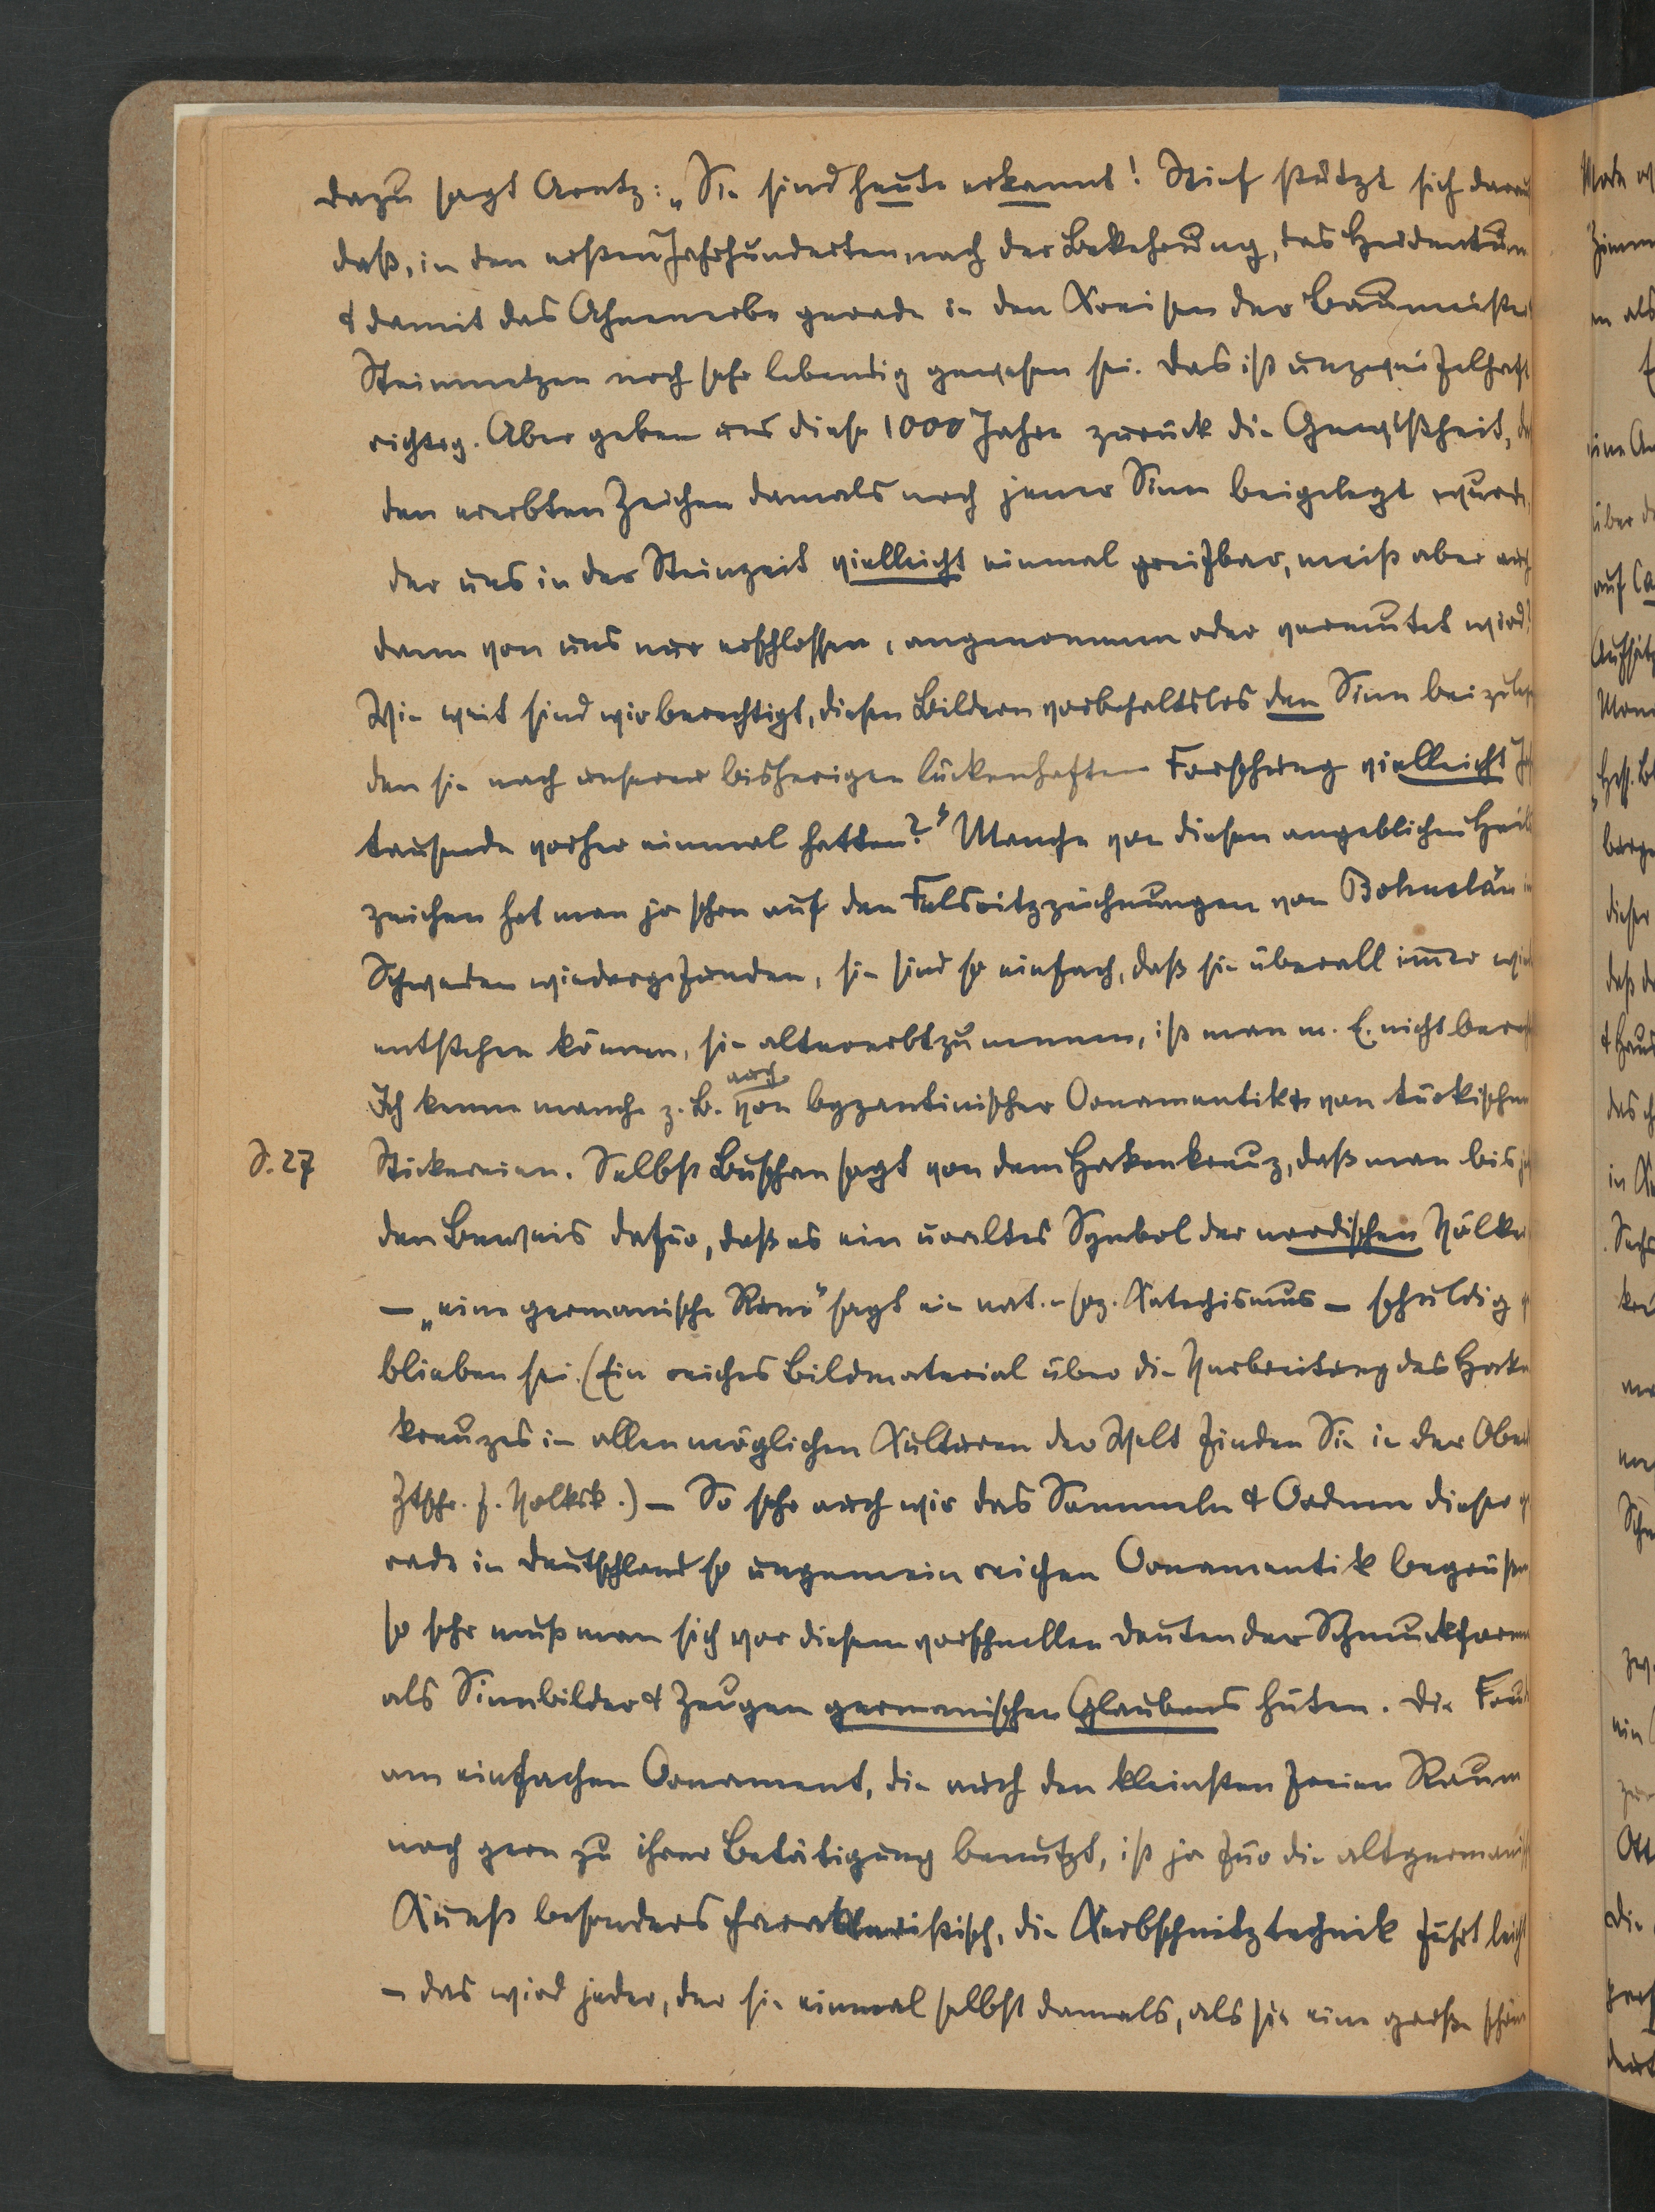 dazu sagt Arntz: „Sie sind heute erkannt! Stief stützt sich darau
daß, in den ersten Jahrhunderten nach der Bekehrung, das Heidentum
& damit das Ahnenerbe gerade in den Kreisen der Baumeister
Steinmetzen noch sehr lebendig gewesen sei. Das ist unzweifelhaft
richtig. Aber geben uns diese 1000 Jahre zurück die Gewißheit, da
den ererbten Zeichen damals noch jener Sinn beigelegt wurde,
der uns in der Steinzeit vielleicht einmal greifbar, meist aber auch
dann von uns nur erschlossen, angenommen oder vermutet wird?
Wie weit sind wir berechtigt, diesen Bildern vorbehaltslos den Sinn beizulege
den sie nach unserer bisherigen lückenhaften Forschung vielleicht Jah
tausende vorher einmal hatten?“ Manche von diesen angeblichen Heils
zeichen hat man ja schon auf den Felsritzzeichnungen von Bohuslän in
Schweden wiedergefunden, sie sind so einfach, daß sie überall immer wied
entstehen können, sie altererbt zu nennen, ist man m. E. nicht berech
Ich kenne manche z. B. auch von byzantinischer Ornamentik & von türkischen
S. 27 Stickereien. Selbst Buschan sagt von dem Hakenkreuz, daß man bis je
den Beweis dafür, daß es ein uraltes Symbol der nordischen Völker
– „eine germanische Rune“ sagt ein nat.-soz. Katechismus – schuldig ge
blieben sei. (Ein reiches Bildmaterial über die Verbreitung des Haken
kreuzes in allen möglichen Kulturen der Welt finden Sie in der Ober
Ztschr. f. Volksk.) – So sehr auch wir das Sammeln & Ordnen dieser ge
rade in Deutschland so ungemein reichen Ornamentik begrüßen
so sehr muß man sich vor diesem vorschnellen Deuten der Schmuckformen
als Sinnbilder & Zeugen germanischen Glaubens hüten. Die Freude
am einfachen Ornament, die auch den kleinsten freien Raum
noch gern zu ihrer Betätigung benutzt, ist ja für die altgermanisch
Kunst besonders charakteristisch, die Kerbschnitztechnik führt leicht
– das wird jeder, der sie einmal selbst damals, als sie eine große schöne